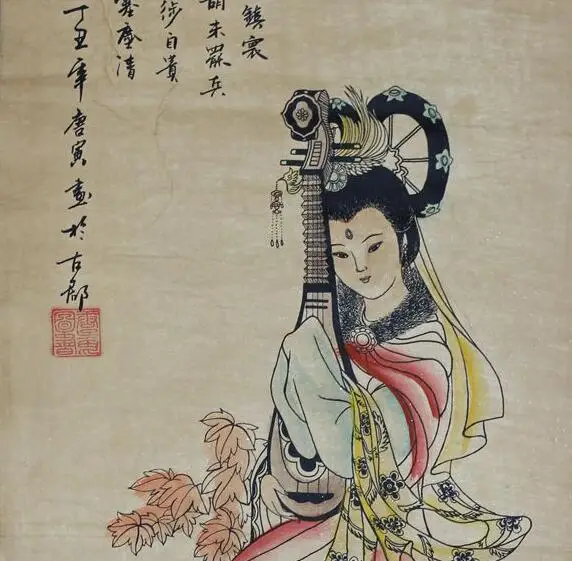 鎮裏
胡未罷兵
自貴
塞塵清
丁丑年唐寅畫於古郡